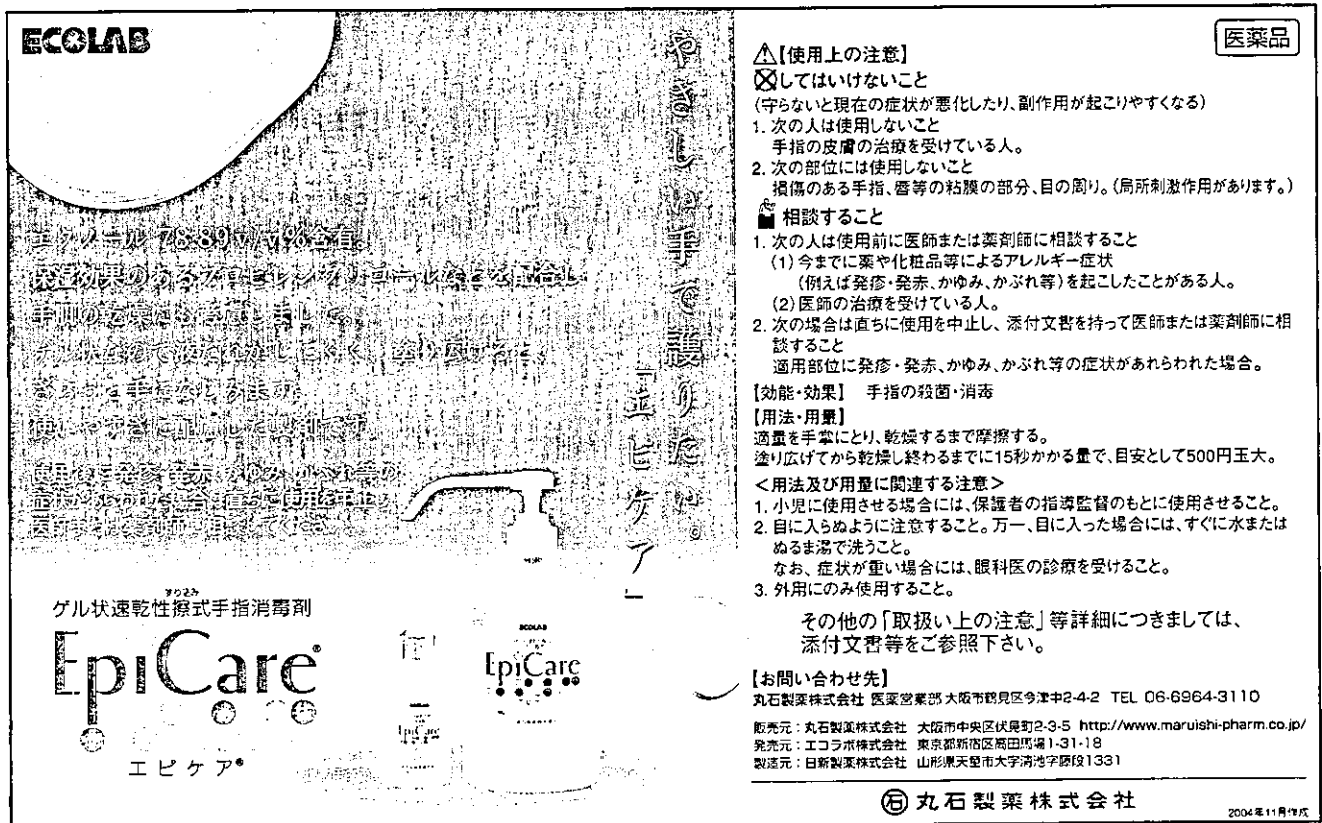 ECOLAB
やさしい手で護りたい。
「エピケア」
エタノール 78.89v/v%含有。
保湿効果のあるプロピレングリコールなどを配合し
手肌の
ゲル状なので
使いやすさに配慮した製剤です。
使用後に発疹・発赤、かゆみ、かぶれ等の
ゲル状速乾性擦式手指消毒剤
すりこみ
EpiCare®
エピケア®
ECOLAB
EpiCare
EpiCare
医薬品
⚠【使用上の注意】
してはいけないこと
(守らないと現在の症状が悪化したり、副作用が起こりやすくなる)
1. 次の人は使用しないこと
手指の皮膚の治療を受けている人。
2. 次の部位には使用しないこと
損傷のある手指、唇等の粘膜の部分、目の周り。(局所刺激作用があります。)
相談すること
1. 次の人は使用前に医師または薬剤師に相談すること
(1) 今までに薬や化粧品等によるアレルギー症状
(例えば発疹・発赤、かゆみ、かぶれ等)を起こしたことがある人。
(2) 医師の治療を受けている人。
2. 次の場合は直ちに使用を中止し、添付文書を持って医師または薬剤師に相
談すること
適用部位に発疹・発赤、かゆみ、かぶれ等の症状があれらわれた場合。
【効能・効果】 手指の殺菌・消毒
【用法・用量】
適量を手掌にとり、乾燥するまで摩擦する。
塗り広げてから乾燥し終わるまでに15秒かかる量で、目安として500円玉大。
<用法及び用量に関連する注意>
1. 小児に使用させる場合には、保護者の指導監督のもとに使用させること。
2. 目に入らぬように注意すること。万一、目に入った場合には、すぐに水または
ぬるま湯で洗うこと。
なお、症状が重い場合には、眼科医の診療を受けること。
3. 外用にのみ使用すること。
その他の「取扱い上の注意」等詳細につきましては、
添付文書等をご参照下さい。
【お問い合わせ先】
丸石製薬株式会社 医薬営業部 大阪市鶴見区今津中2-4-2 TEL 06-6964-3110
販売元:丸石製薬株式会社 大阪市中央区伏見町2-3-5 http://www.maruishi-pharm.co.jp/
発売元:エコラボ株式会社 東京都新宿区高田馬場1-31-18
製造元:日新製薬株式会社 山形県天童市大字清池字藤段1331
石 丸石製薬株式会社
2004年11月作成